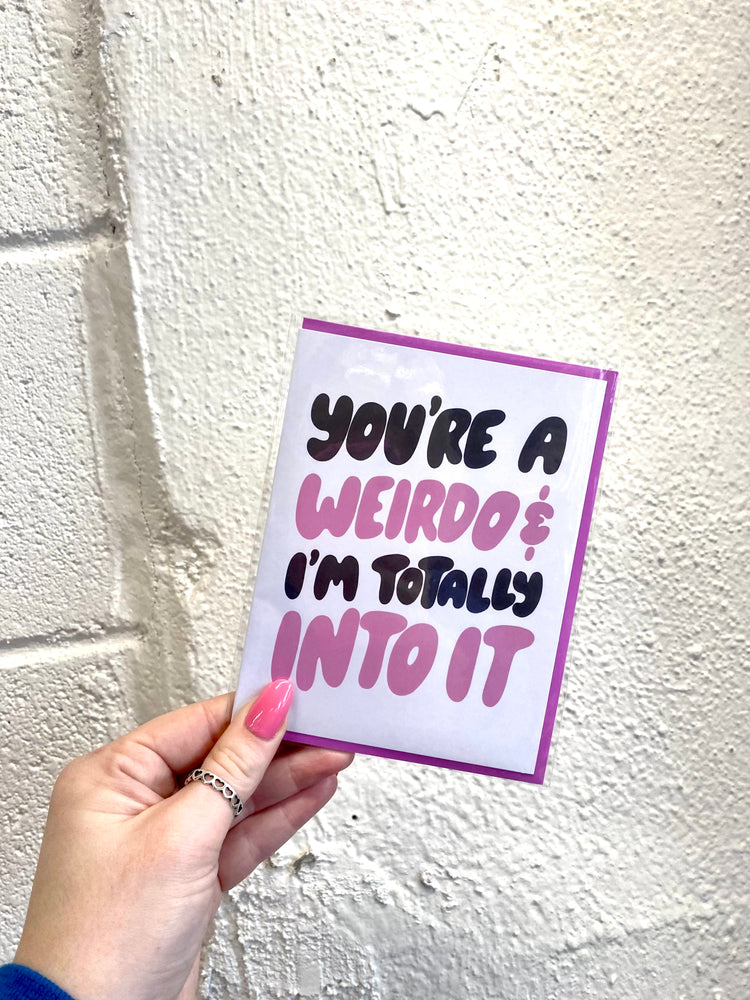 YOU'RE A
WEIRDO &
I'M TOTALLY
INTO IT